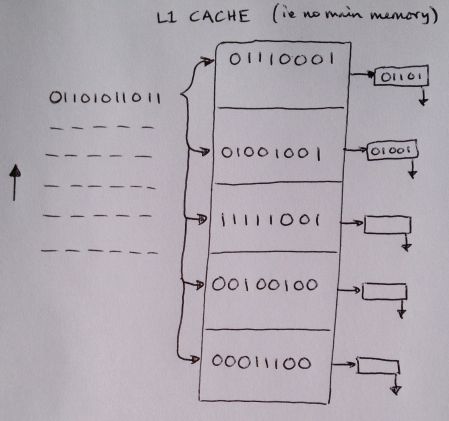 L1 CACHE (ie no main memory)
01110001
01101
01101011011
01001001
01001
11111001
00100100
00011100